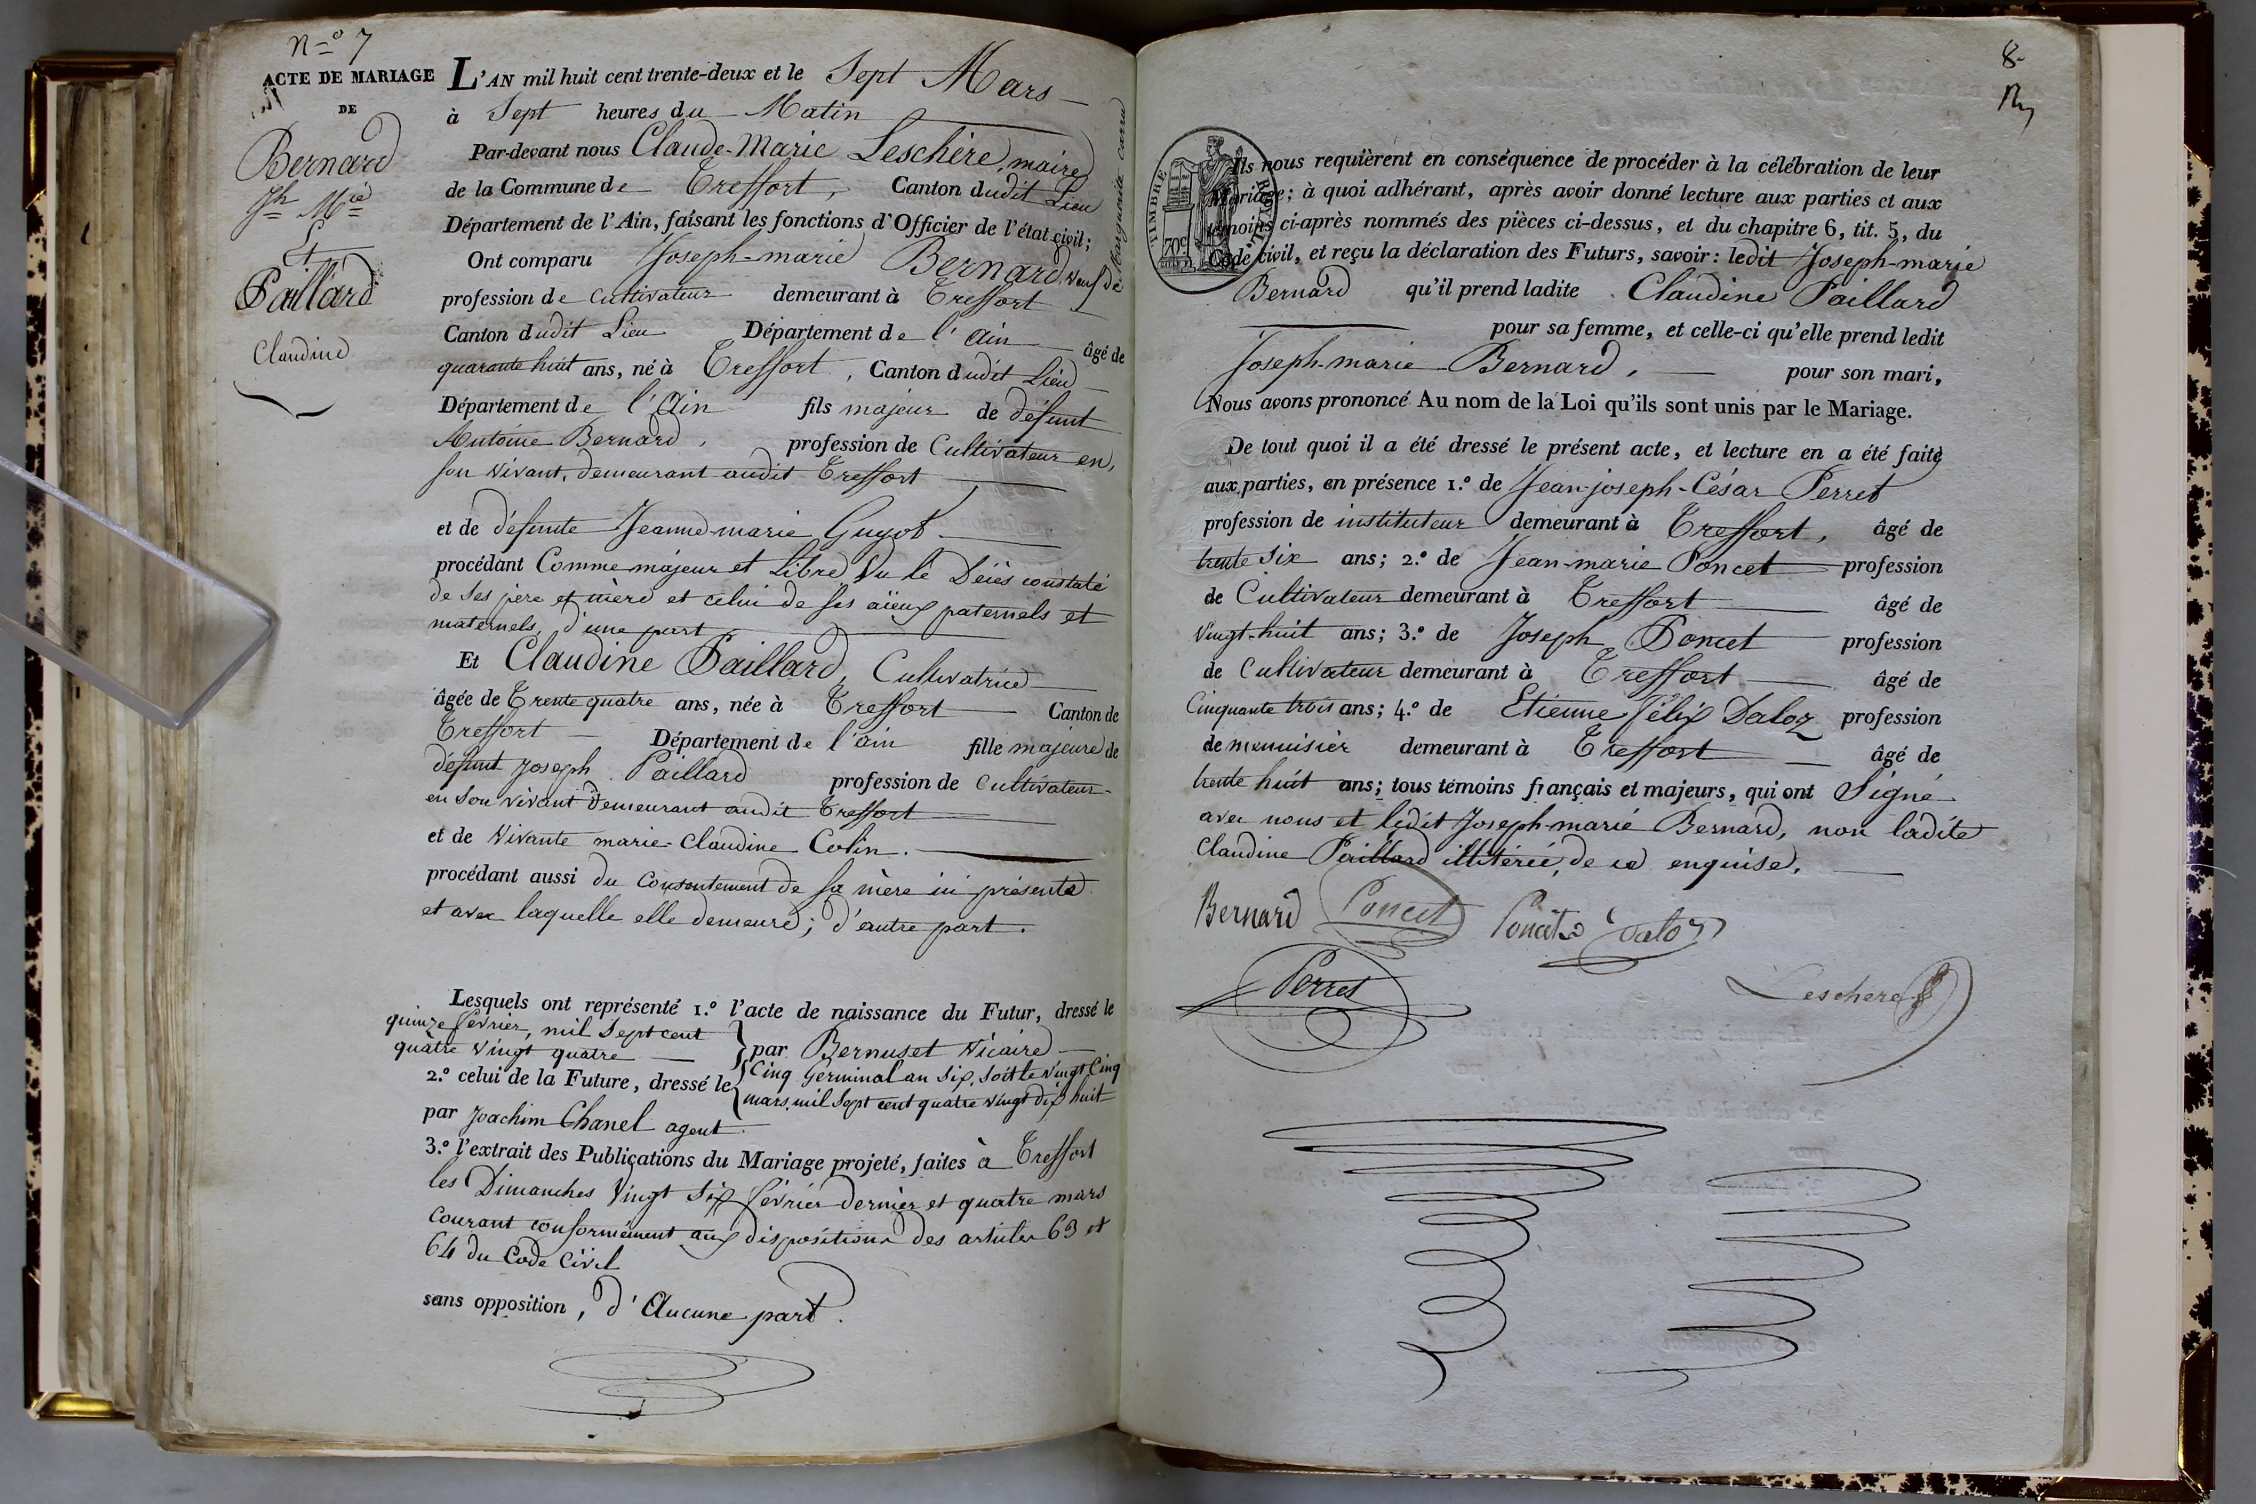 N.º 7
ACTE DE MARIAGE
DE
Bernard
Jh Mie
Et
Paillard
Claudine
L'AN mil huit cent trente-deux et le Sept Mars
à Sept heures du Matin
Par-devant nous Claude-Marie Leschère, maire
de la Commune de Treffort, Canton dudit Lieu
Département de l'Ain, faisant les fonctions d'Officier de l'état civil;
Ont comparu Joseph-marie Bernard, veuf de Marguerite
profession de Cultivateur demeurant à Treffort
Canton dudit Lieu Département de l'Ain âgé de
quarante huit ans, né à Treffort, Canton dudit Lieu
Département de l'Ain fils majeur de défunt
Antoine Bernard, profession de Cultivateur en
son vivant, demeurant audit Treffort
et de défunte Jeanne-marie Guyot.
procédant Comme majeur et Libre Vu le Décès constaté
de ses père et mère et celui de ses aïeux paternels et
maternels, d'une part
Et Claudine Paillard, Cultivatrice
âgée de Trente quatre ans, née à Treffort Canton de
Treffort Département de l'ain fille majeure de
défunt Joseph Paillard profession de Cultivateur
en son vivant demeurant audit Treffort
et de Vivante marie-Claudine Colin.
procédant aussi du Consentement de sa mère ici présente
et avec laquelle elle demeure; d'autre part.
Lesquels ont représenté 1.º l'acte de naissance du Futur, dressé le
quinze février, mil Sept cent
quatre vingt quatre par Bernuset Vicaire
2.º celui de la Future, dressé le Cinq Germinal an Six, soit le vingt Cinq
mars, mil Sept cent quatre vingt dix huit
par Joachim Chanel agent.
3.º l'extrait des Publications du Mariage projeté, faites à Treffort
les Dimanches Vingt Six février dernier et quatre mars
courant conformément aux dispositions des articles 63 et
64 du Code Civil
sans opposition, d'Aucune part.
8
TIMBRE ROYAL
70c
Ils nous requièrent en conséquence de procéder à la célébration de leur
Mariage; à quoi adhérant, après avoir donné lecture aux parties et aux
témoins ci-après nommés des pièces ci-dessus, et du chapitre 6, tit. 5, du
Code civil, et reçu la déclaration des Futurs, savoir: ledit Joseph-marie
Bernard qu'il prend ladite Claudine Paillard
pour sa femme, et celle-ci qu'elle prend ledit
Joseph-marie Bernard, pour son mari,
Nous avons prononcé Au nom de la Loi qu'ils sont unis par le Mariage.
De tout quoi il a été dressé le présent acte, et lecture en a été faite
aux parties, en présence 1.º de Jean-joseph-César Perret
profession de instituteur demeurant à Treffort, âgé de
trente Six ans; 2.º de Jean-marie Poncet profession
de Cultivateur demeurant à Treffort âgé de
Vingt-huit ans; 3.º de Joseph Poncet profession
de Cultivateur demeurant à Treffort âgé de
Cinquante trois ans; 4.º de Etienne Félix Daloz profession
de menuisier demeurant à Treffort âgé de
trente huit ans; tous témoins français et majeurs, qui ont Signé
avec nous et ledit Joseph-marie Bernard, non ladite
Claudine Paillard illitérée, de ce enquise.
Bernard Poncet Poncet Daloz
Perret
Leschere